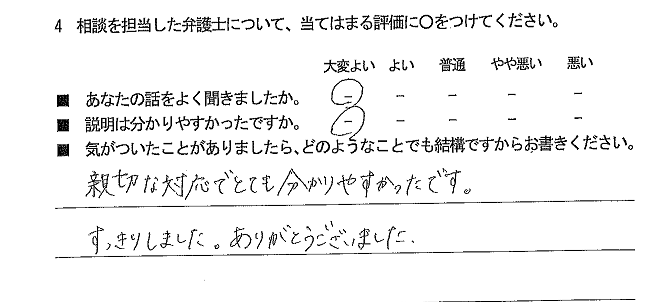 4 相談を担当した弁護士について、当てはまる評価に○をつけてください。
大変よい よい 普通 やや悪い 悪い
■ あなたの話をよく聞きましたか。 － － － － －
■ 説明は分かりやすかったですか。 － － － － －
■ 気がついたことがありましたら、どのようなことでも結構ですからお書きください。
親切な対応でとても分かりやすかったです。
すっきりしました。ありがとうございました.